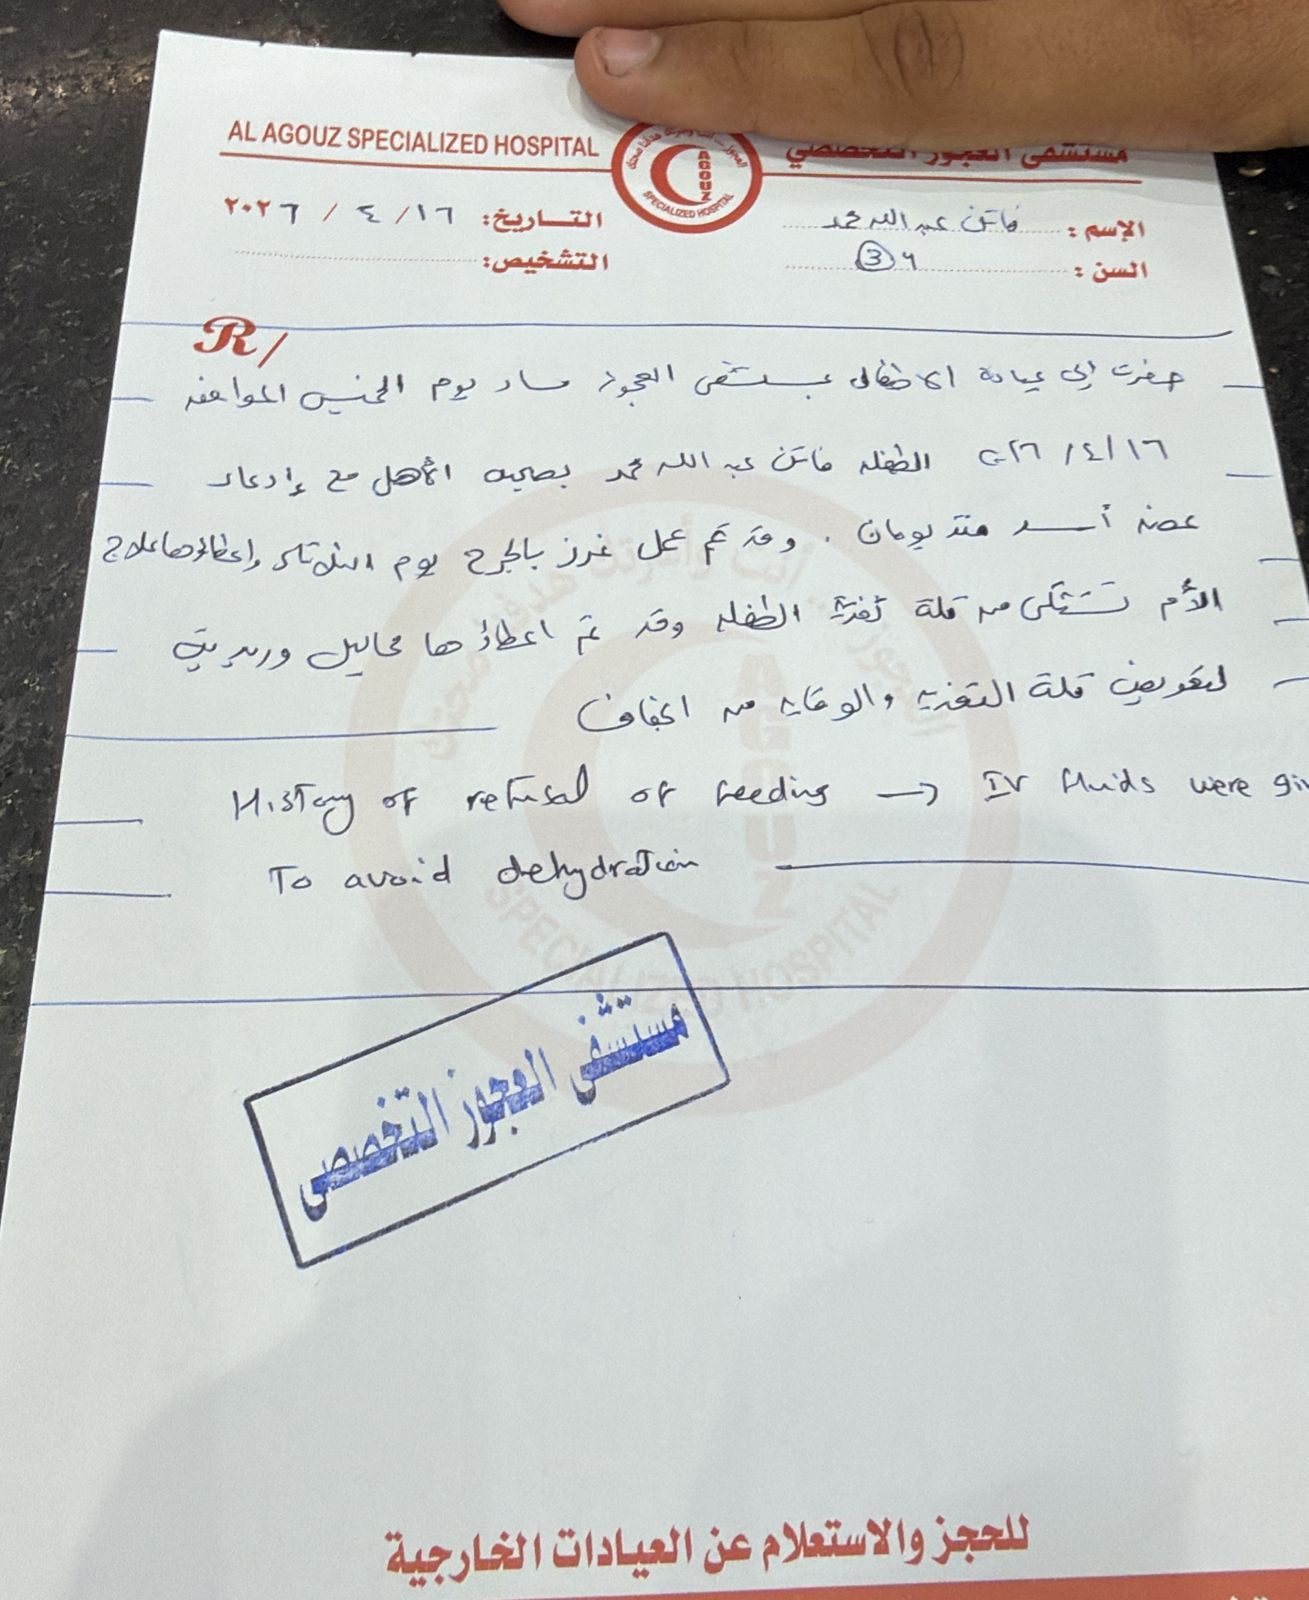 AL AGOUZ SPECIALIZED HOSPITAL
مستشفى العجوز التخصصي
AGOUZ
SPECIALIZED HOSPITAL
الإسم : فاتن عبد الله محمد
التاريخ: ١٦ / ٤ / ٢٠٢٦
السن : 3 y
التشخيص:
R/
حضرت إلى عيادة الاطفال بمستشفى العجوز مساء يوم الخميس الموافق
١٦/٤/٢٠٢٦ الطفله فاتن عبد الله محمد بصحبه الأهل مع إدعاء
عضه أسد منذ يومان . وقد تم عمل غرز بالجرح يوم الثلاثاء وإعطاؤها علاج
الأم تشتكى من قلة تغذية الطفله وقد تم اعطاؤها محاليل وريدية
لتعويض قلة التغذيه والوقايه من الجفاف
History of refusal of feeding → IV fluids were
To avoid dehydration
AGOUZ
SPECIALIZED HOSPITAL
مستشفى العجوز التخصصى
للحجز والاستعلام عن العيادات الخارجية